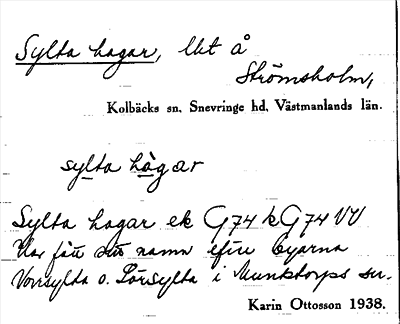 Sylta hagar, lht å
Strömsholm,
Kolbäcks sn, Snevringe hd, Västmanlands län.
sylta hàgar
Sylta hagar ek G74 k G74 VV
Har fått sitt namn efter byarna
Norrsylta o. Sörsylta i Munktorps sn.
Karin Ottosson 1938.